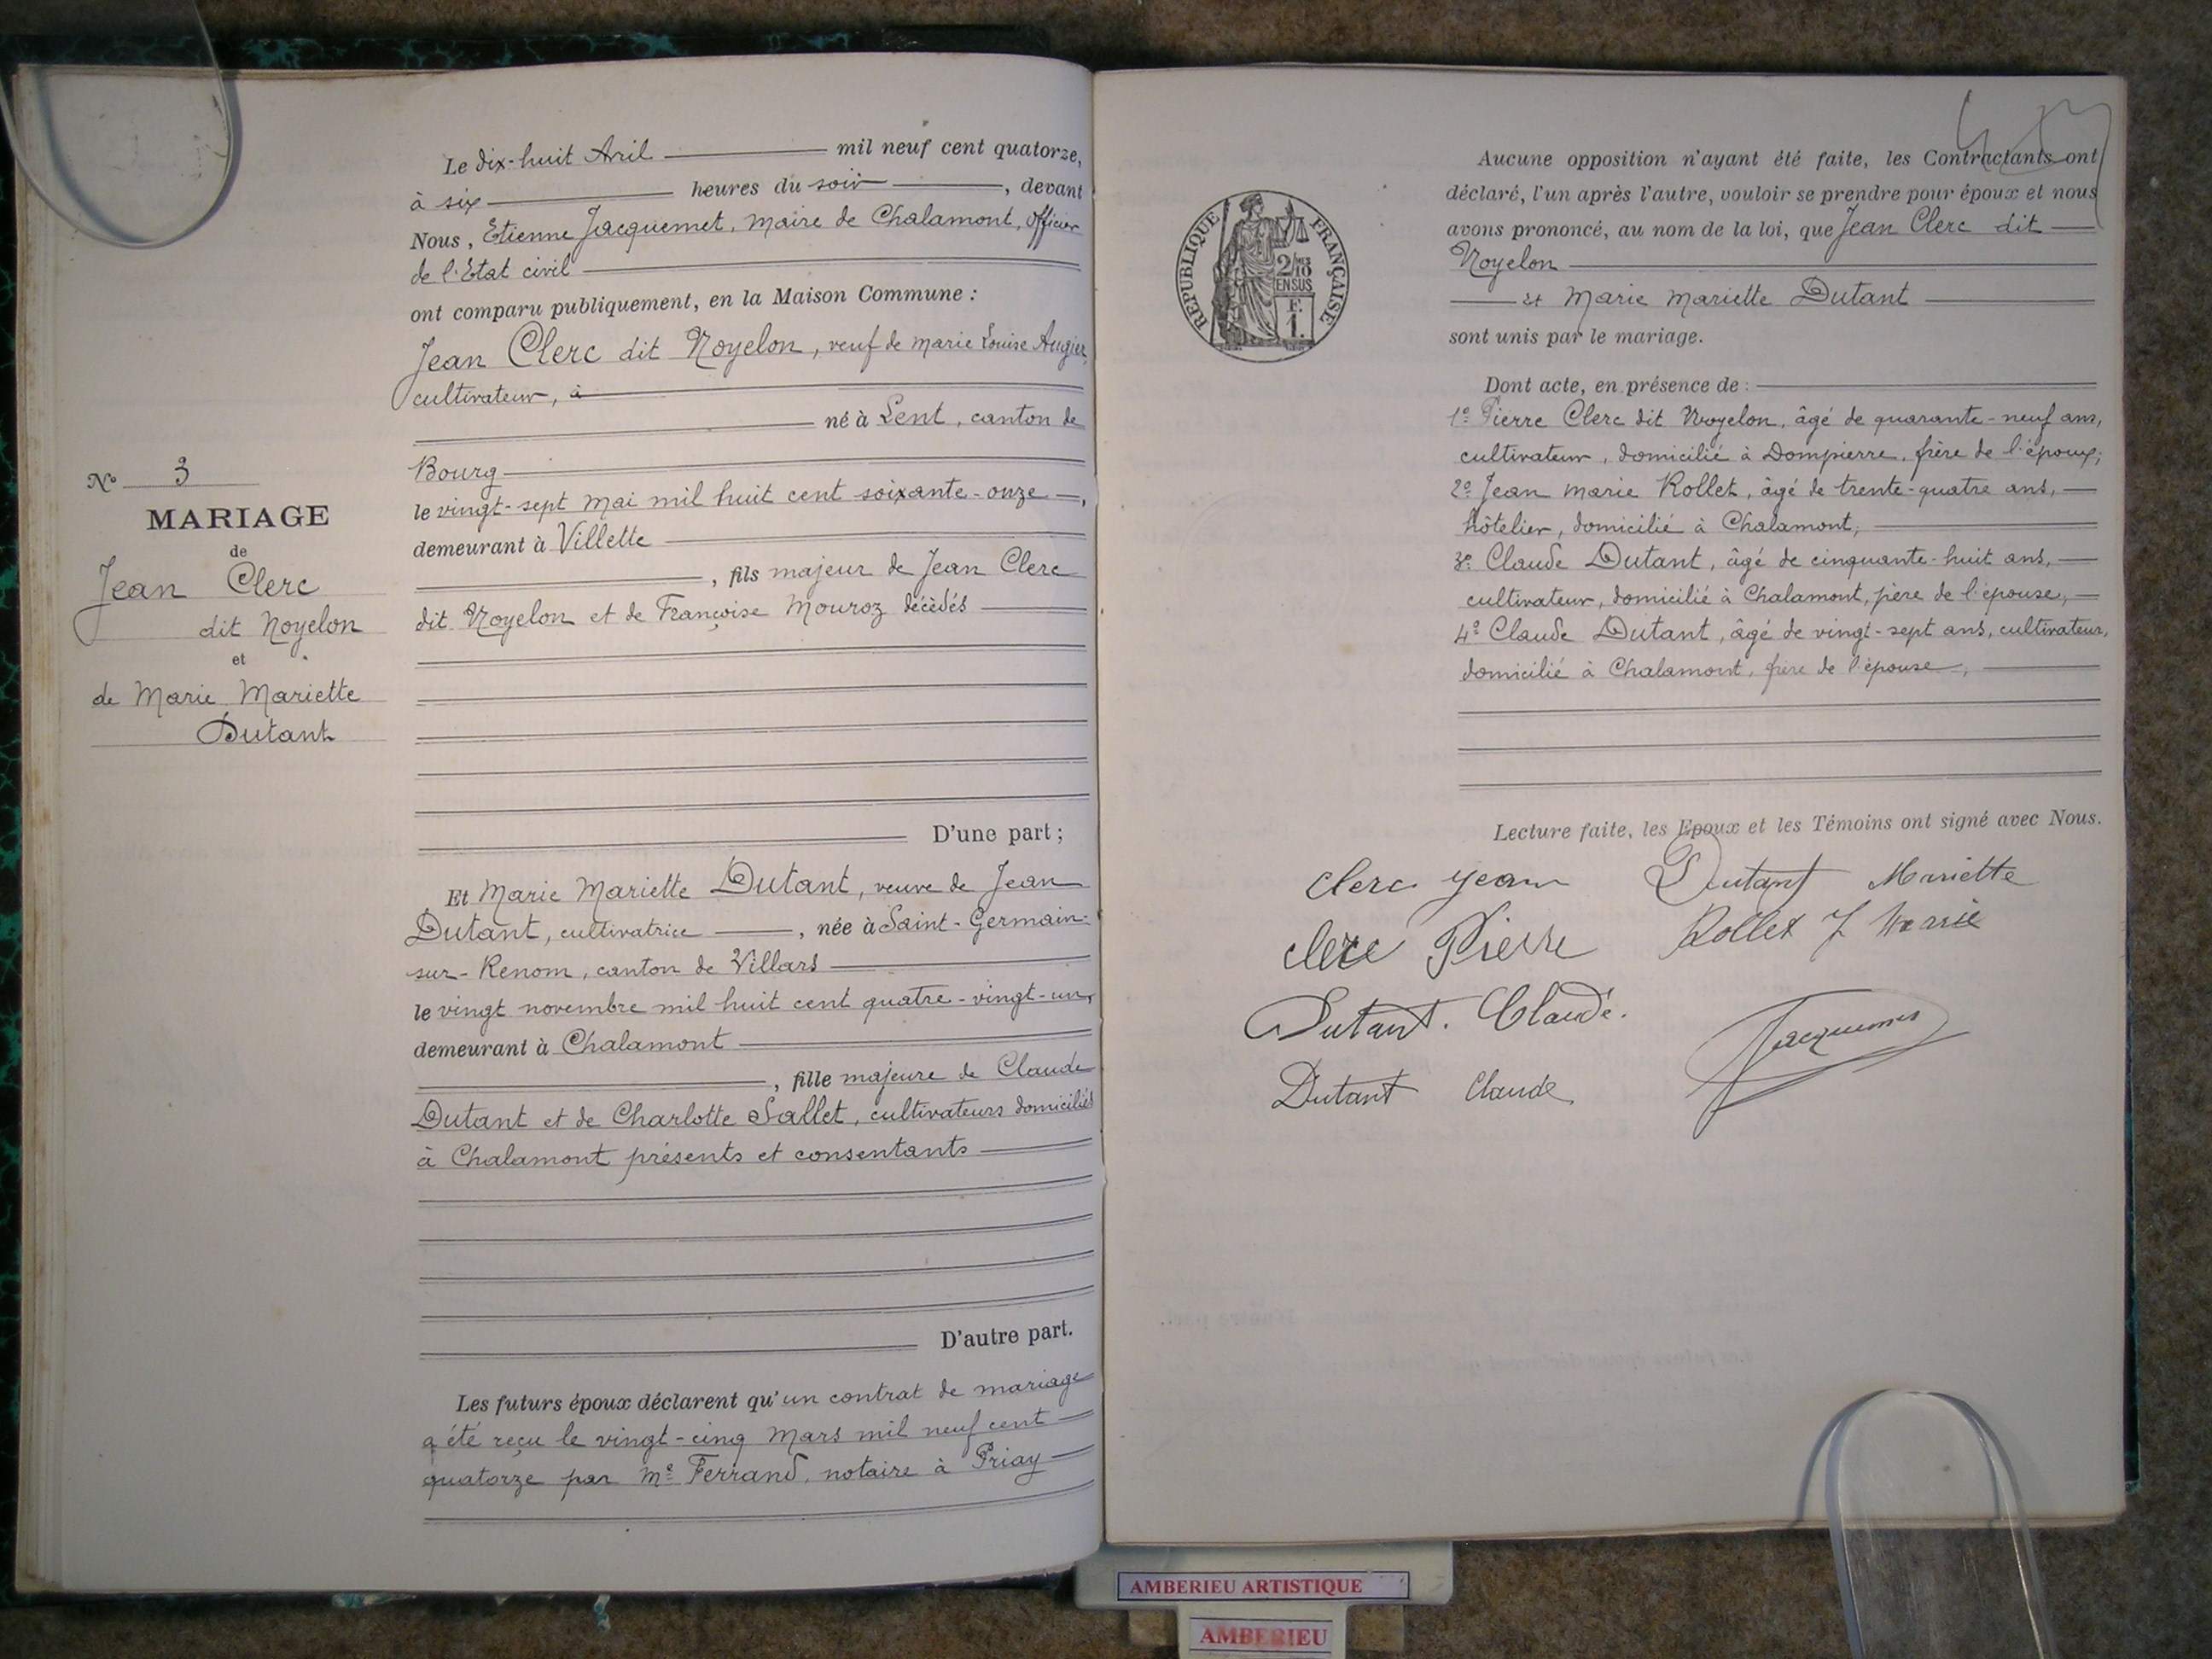 Le dix-huit Avril mil neuf cent quatorze,
à six heures du soir, devant
Nous, Etienne Jacquemet, maire de Chalamont, officier
de l'Etat civil
ont comparu publiquement, en la Maison Commune :
Jean Clerc dit Noyelon, veuf de marie Louise Augier,
cultivateur, à
né à Lent, canton de
Bourg
le vingt-sept mai mil huit cent soixante-onze,
demeurant à Villette
, fils majeur de Jean Clerc
dit Noyelon et de Françoise Mouroz décédés
D'une part ;
Et Marie Mariette Dutant, veuve de Jean
Dutant, cultivatrice, née à Saint-Germain-
sur-Renom, canton de Villars
le vingt novembre mil huit cent quatre-vingt-un,
demeurant à Chalamont
, fille majeure de Claude
Dutant et de Charlotte Sallet, cultivateurs domiciliés
à Chalamont présents et consentants
D'autre part.
Les futurs époux déclarent qu'un contrat de mariage
a été reçu le vingt-cinq Mars mil neuf cent
quatorze par Me Ferrand, notaire à Priay
No 3
MARIAGE
de
Jean Clerc
dit Noyelon
et
de Marie Mariette
Dutant
RÉPUBLIQUE FRANÇAISE
2/10
EN SUS
F.
1.
Aucune opposition n'ayant été faite, les Contractants ont
déclaré, l'un après l'autre, vouloir se prendre pour époux et nous
avons prononcé, au nom de la loi, que Jean Clerc dit
Noyelon
et Marie Mariette Dutant
sont unis par le mariage.
Dont acte, en présence de :
1º Pierre Clerc dit Noyelon, âgé de quarante-neuf ans,
cultivateur, domicilié à Dompierre, frère de l'époux;
2º Jean marie Rollet, âgé de trente-quatre ans,
hôtelier, domicilié à Chalamont,
3º Claude Dutant, âgé de cinquante-huit ans,
cultivateur, domicilié à Chalamont, père de l'épouse,
4º Claude Dutant, âgé de vingt-sept ans, cultivateur,
domicilié à Chalamont, frère de l'épouse,
Lecture faite, les Epoux et les Témoins ont signé avec Nous.
Clerc Jean Dutant Mariette
Clerc Pierre Rollet J Marie
Dutant Claude.
Jacquemet
Dutant Claude
AMBERIEU ARTISTIQUE
AMBERIEU